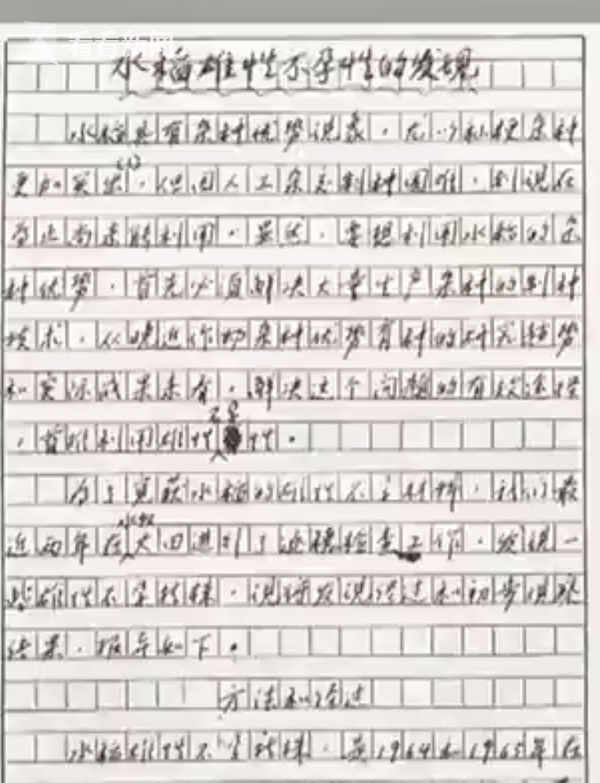 看看新闻
水稻雄性不孕性的发现
水稻具有杂种优势现象，尤以籼粳杂种
更加突出(1)，但因人工杂交制种困难，到现在
为止尚未能利用。显然，要想利用水稻的杂
种优势，首先必须解决大量生产杂种的制种
技术，从晚近作物杂种优势育种的研究趋势
和实际成果来看，解决这个问题的有效途径
，首推利用雄性不孕性。
为了获水稻的雄性不孕材料，我们最
近两年在水稻大田进行了逐穗检查工作，发现一
些雄性不孕植株，现将发现经过和初步观察
结果，报导如下。
方法和经过
水稻雄性不孕植株，是1964和1965年在